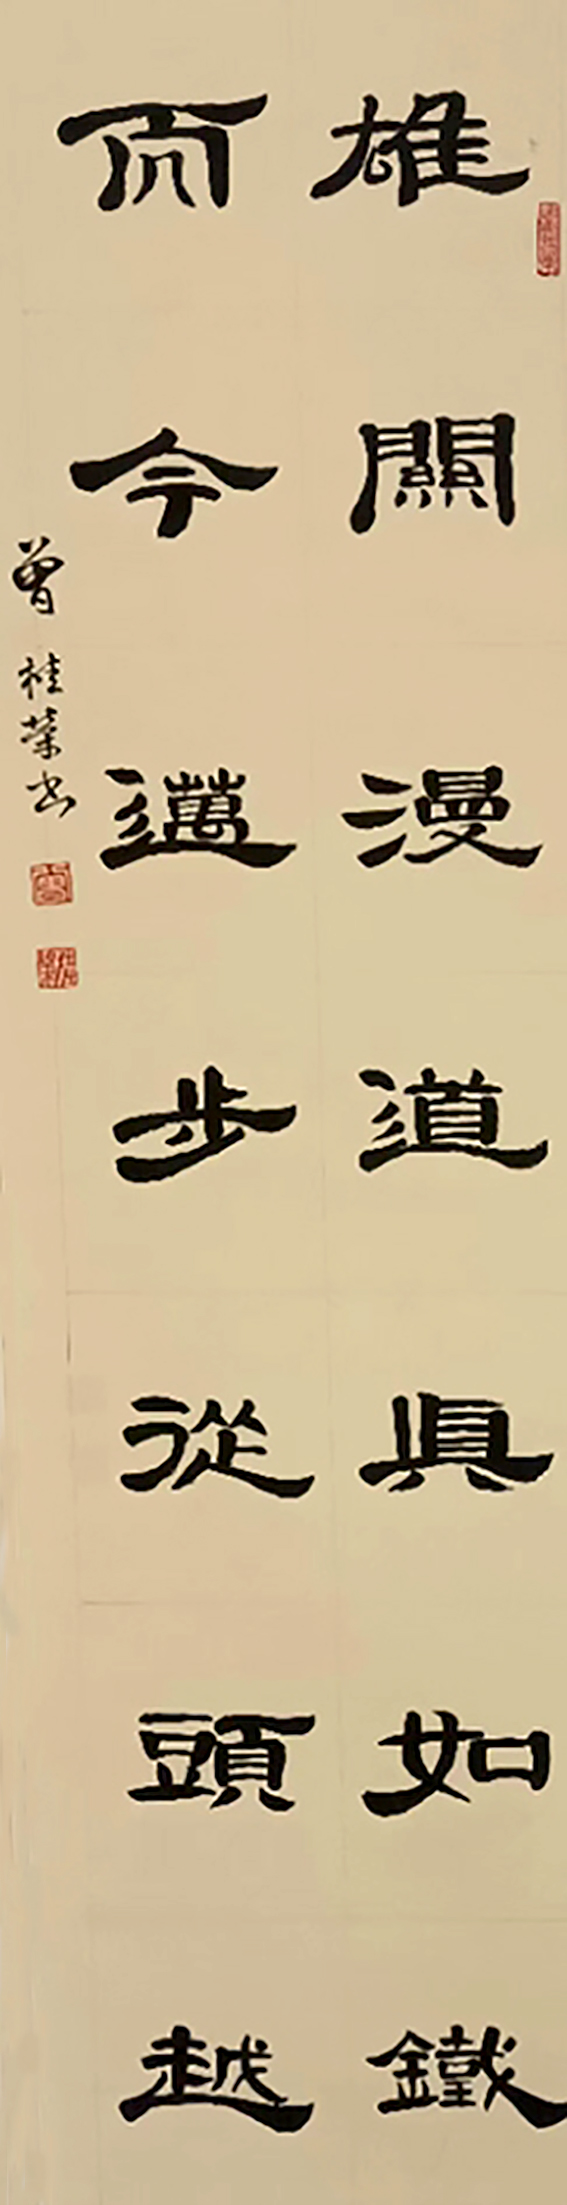 雄關漫道真如鐵
而今邁步從頭越
曾桂榮书